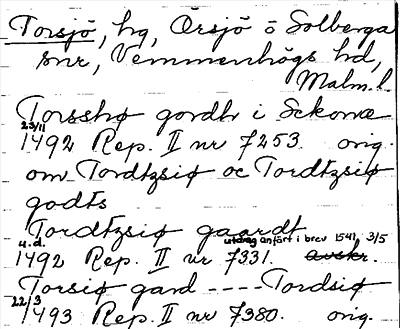 Torsjö, hg, Örsjö o Solberga
snr, Vemmenhögs hd,
Malm. l.
Torsshø gordh i Sckonæ
23/11
1492 Rep. II nr 7253. orig.
om Tordtzsiø oc Tordtzsiø
godts
Tordtzsiø gaardt
u.d. utdrag anfört i brev 1541, 3/5
1492 Rep. II nr 7331. Avskr.
Torsiø gard ---- Tordsiø
22/3
1493 Rep. II nr 7380. orig.